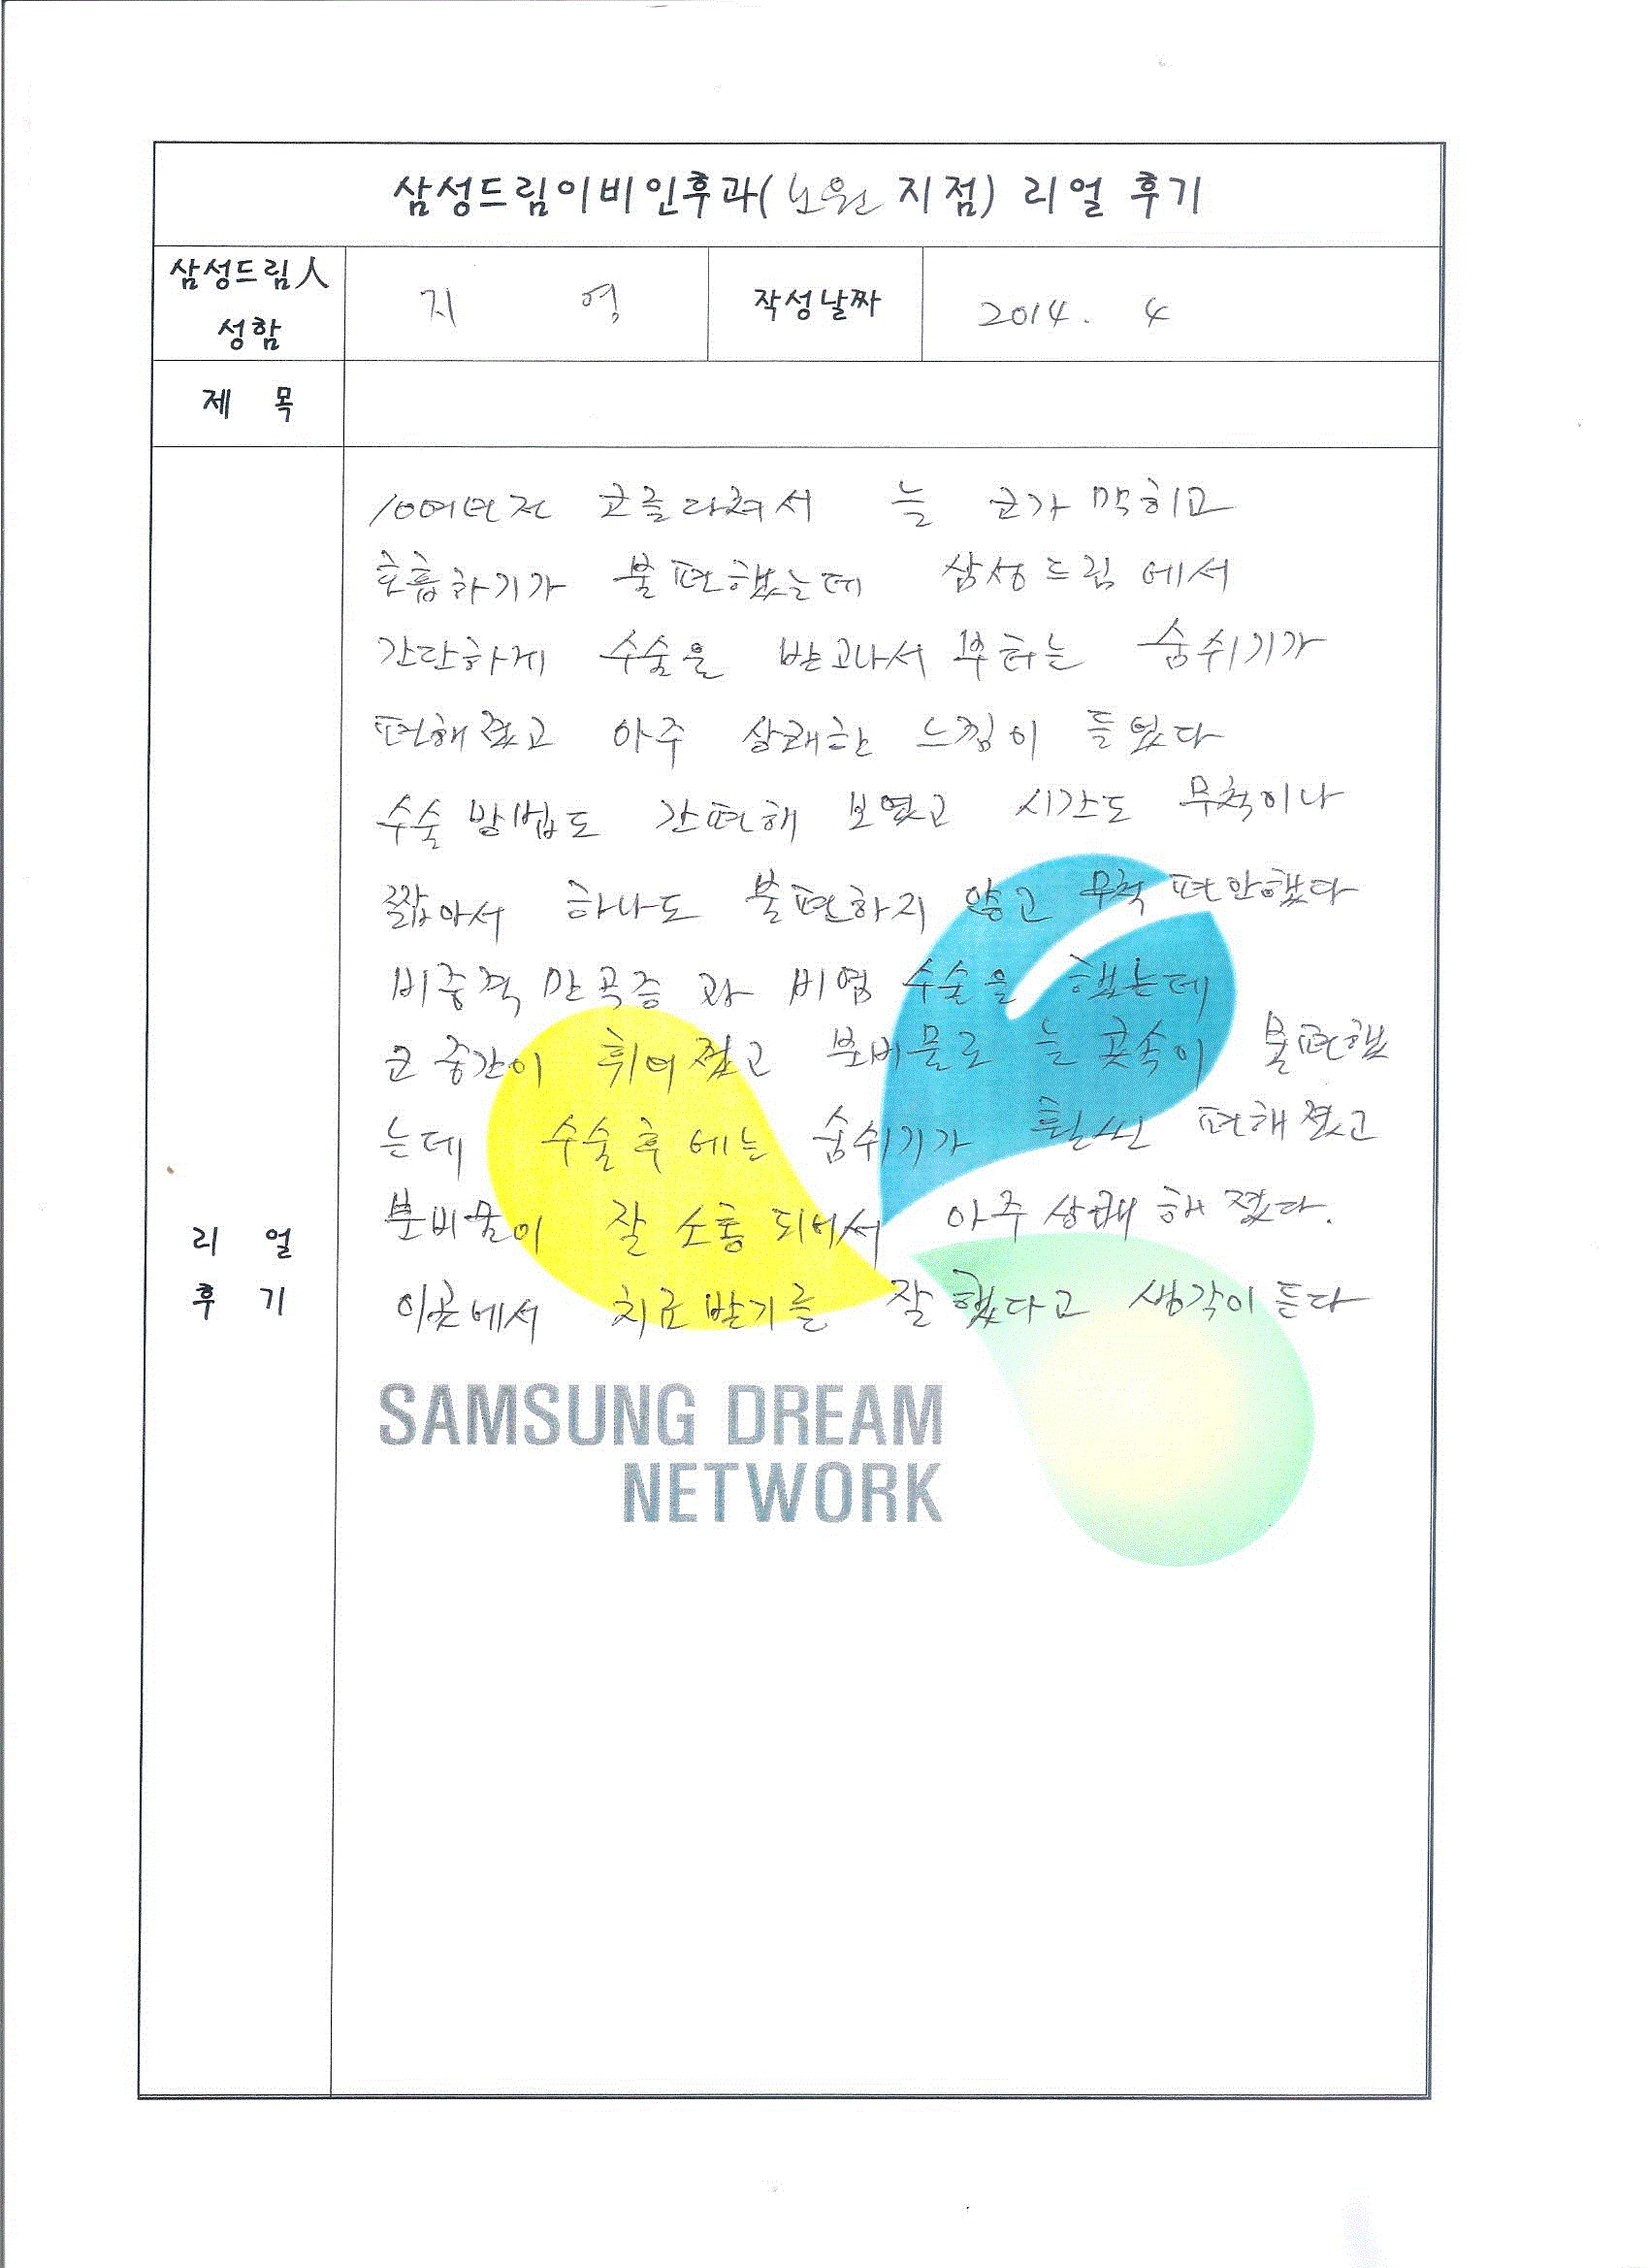 삼성드림이비인후과(노원 지점) 리얼 후기
삼성드림人 성함
지 영
작성날짜
2014. 4
제 목
10여년전 코를다쳐서 늘 코가 막히고
호흡하기가 불편했는데 삼성드림에서
간단하게 수술을 받고나서부터는 숨쉬기가
편해졌고 아주 상쾌한 느낌이 들었다
수술 방법도 간편해 보였고 시간도 무척이나
짧아서 하나도 불편하지 않고 무척 편안했다
비중격 만곡증 과 비염 수술을 했는데
코 중간이 휘어졌고 분비물로 늘 콧속이 불편했
는데 수술후에는 숨쉬기가 훨씬 편해졌고
분비물이 잘 소통되어서 아주 상쾌해졌다.
이곳에서 치료받기를 잘했다고 생각이 든다
리 얼
후 기
SAMSUNG DREAM
NETWORK